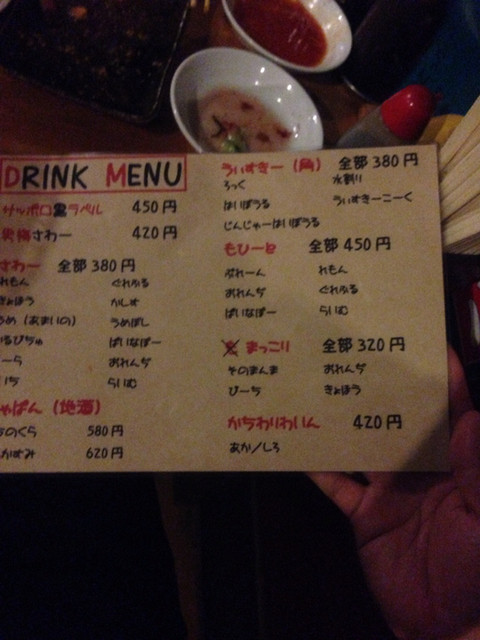 DRINK MENU
サッポロ黒ラベル 450円
男梅さわー 420円
さわー 全部380円
れもん ぐれふる
きょほう かしす
うめ（あまいの） うめぼし
かるぴちゅ ぱいなぽー
こーら おれんぢ
いち らいむ
ゃぱん（地酒）
のくら 580円
かすみ 620円
ういすきー（角） 全部380円
ろっく 水割り
はいぼうる ういすきーこーく
じんじゃーはいぼうる
もひーと 全部450円
ぷれーん れもん
おれんぢ ぐれふる
ぱいなぽー らいむ
まっこり 全部320円
そのまんま おれんぢ
ぴーち きょほう
かちわりわいん 420円
あか／しろ